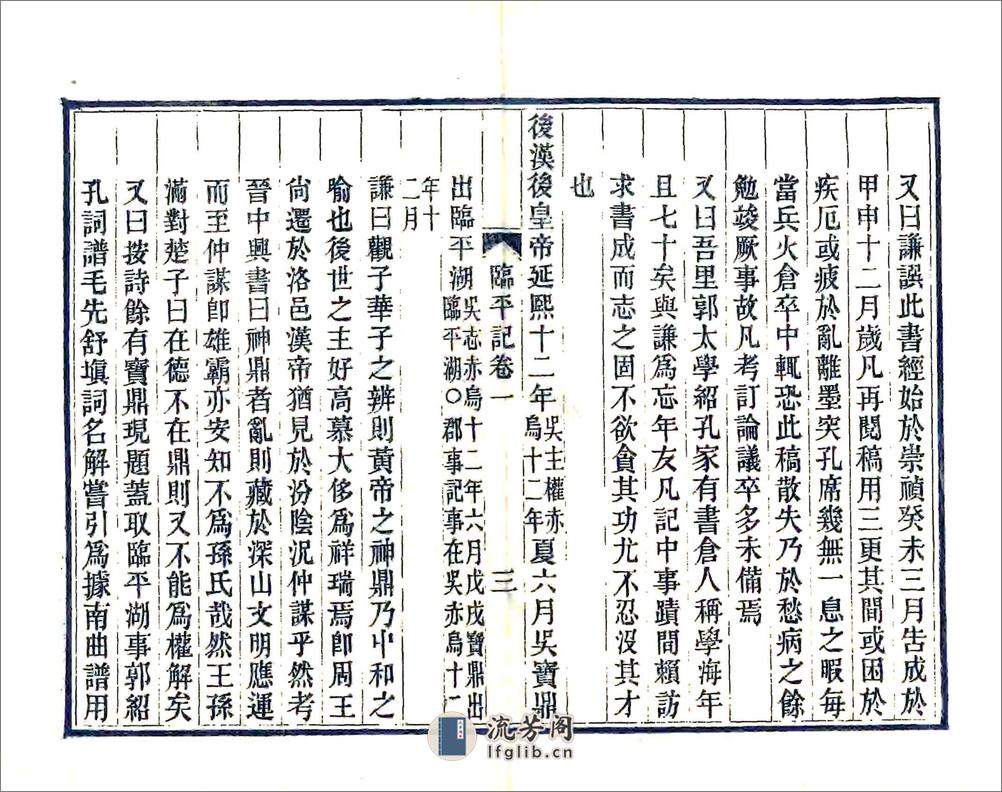 又曰謙譔此書經始於崇禎癸未三月告成於
甲申十二月歲凡再閱稿用三更其間或困於
疾厄或疲於亂離墨突孔席幾無一息之暇每
當兵火倉卒中輒恐此稿散失乃於愁病之餘
勉竣厥事故凡考訂論議卒多未備焉
又曰吾里郭太學紹孔家有書倉人稱學海年
且七十矣與謙爲忘年友凡記中事蹟間賴訪
求書成而志之固不欲貪其功尤不忍沒其才
也
後漢後皇帝延熙十二年吳主權赤烏十二年夏六月吳寶鼎
臨平記卷一
三
出臨平湖吳志赤烏十二年六月戊戌寶鼎出臨平湖○郡事記事在吳赤烏十二
年十二月
謙曰觀子華子之辨則黃帝之神鼎乃中和之
喻也後世之主好高慕大侈爲祥瑞焉卽周王
尙遷於洛邑漢帝猶見於汾陰況仲謀乎然考
晉中興書曰神鼎者亂則藏於深山文明應運
而至仲謀卽雄霸亦安知不爲孫氏哉然王孫
滿對楚子曰在德不在鼎則又不能爲權解矣
又曰按詩餘有寶鼎現題蓋取臨平湖事郭紹
孔詞譜毛先舒塡詞名解嘗引爲據南曲譜用
流芳阁
lfglib.cn